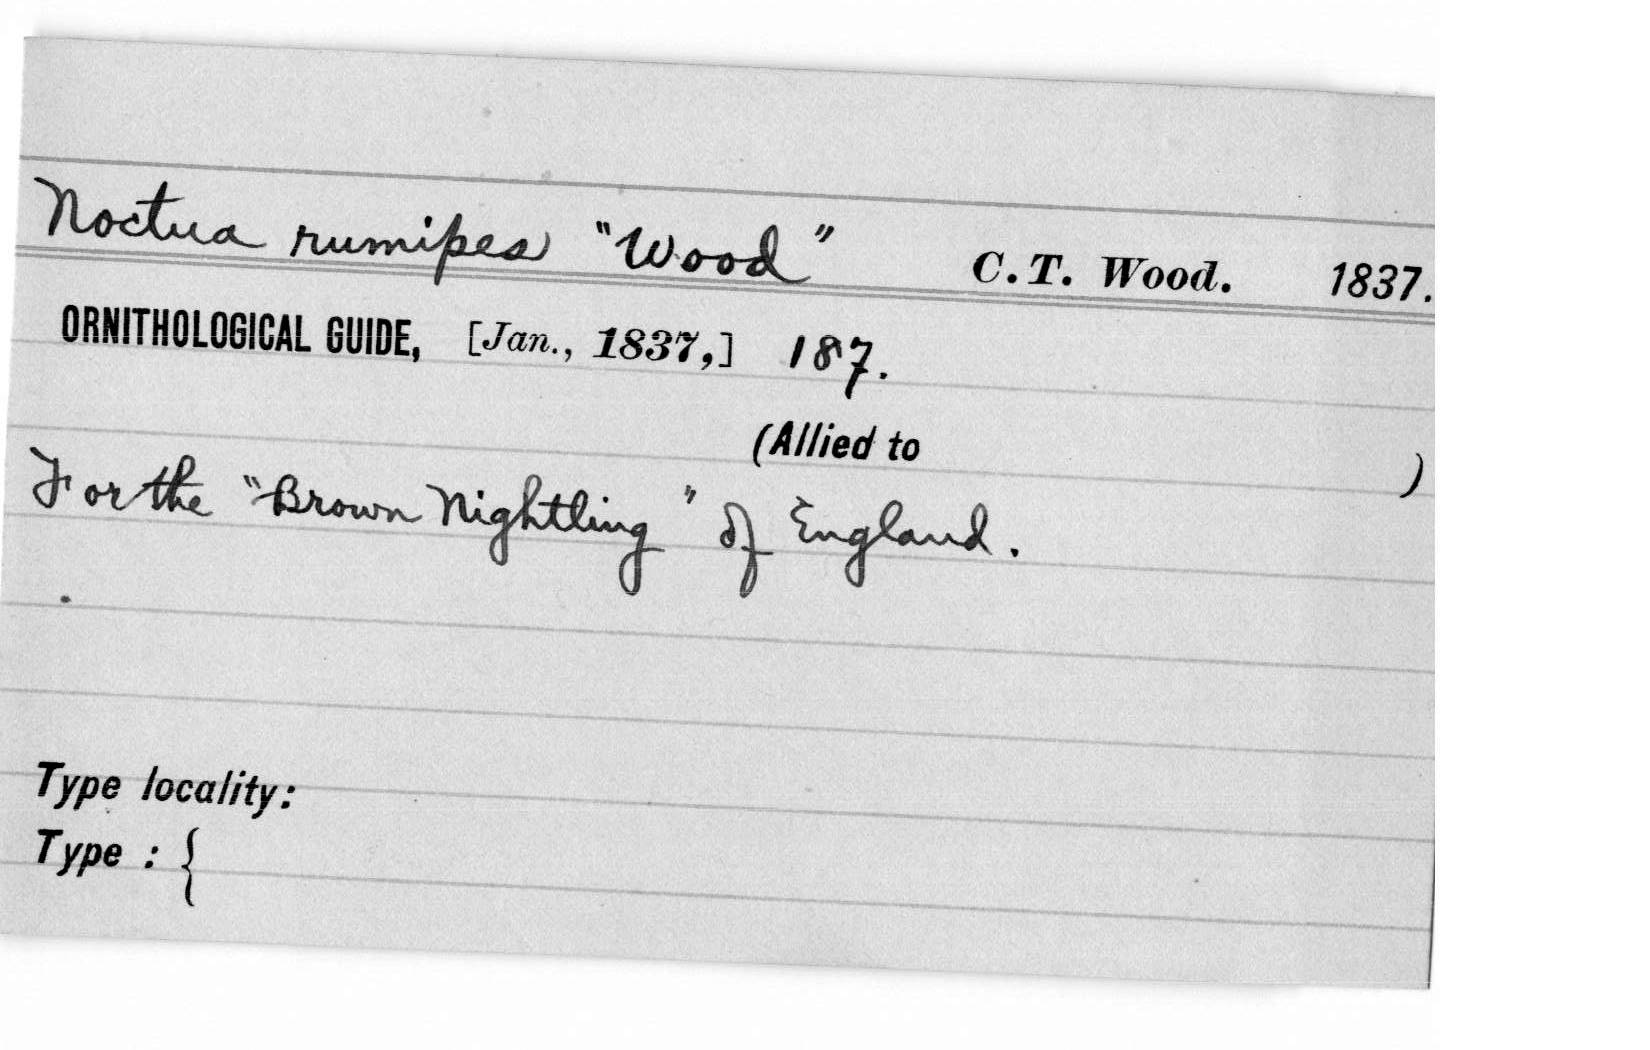 Noctua rumipes "Wood" C. T. Wood. 1837.
ORNITHOLOGICAL GUIDE, [Jan., 1837,] 187.
(Allied to )
For the "Brown Nightling" of England.
Type locality:
Type : {